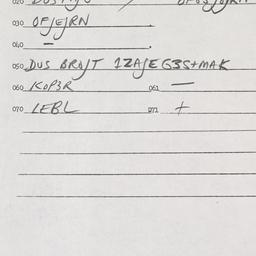 030 OFJEJRN
040 -
050 DUS BROJT 1ZAJE G3S+MAK
060 KOP3R 061 —
070 LEBL 071 +